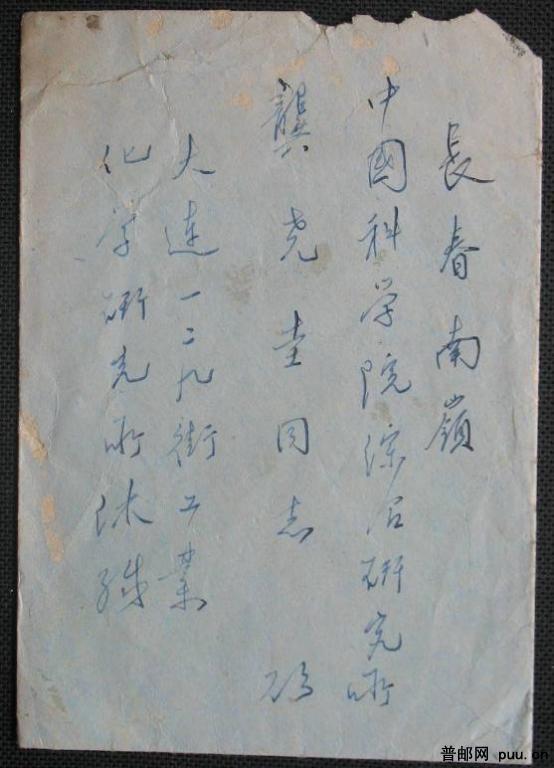 長春南嶺
中國科学院综合研究所
龔尧圭同志 啟
大连一二九街工業
化学研究所沐緘
普邮网 puu.cn